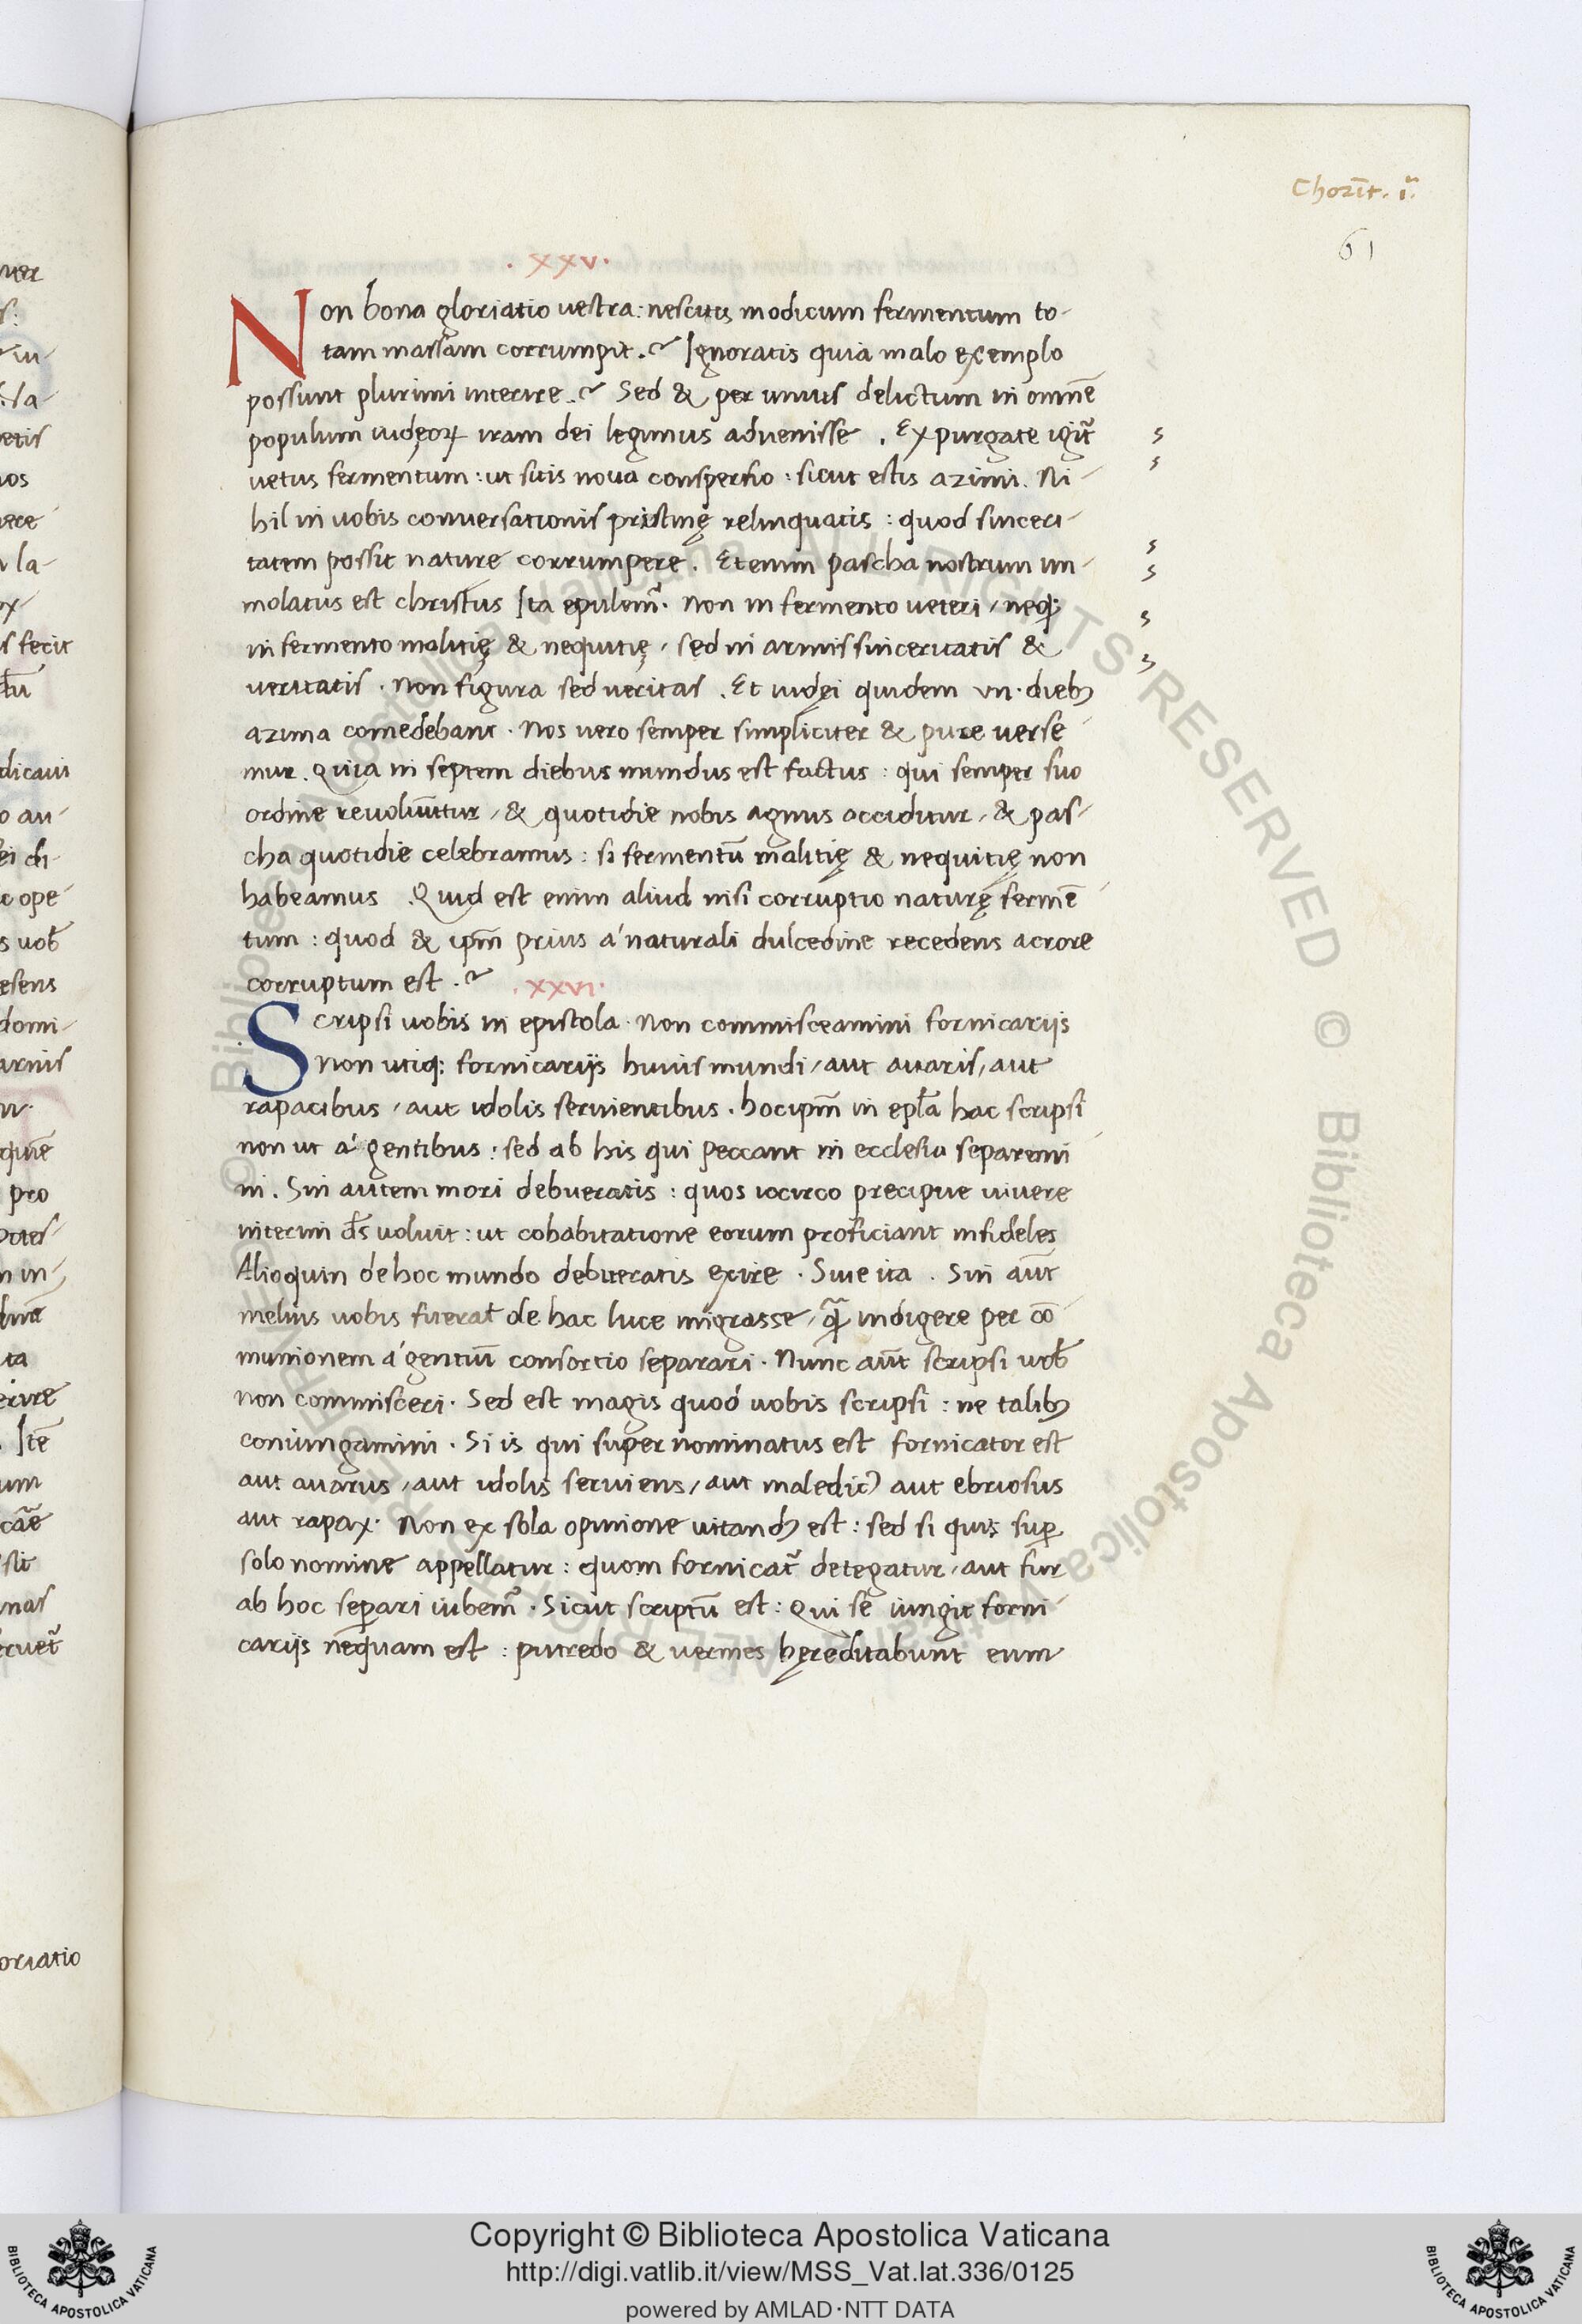 Chorīt. i.ᵃ
61
. XXV .
Non bona gloriatio uestra: nescitis modicum fermentum to-
tam massam corrumpit .? Ignoratis quia malo exemplo
possunt plurimi interire .? Sed & per unius delictum in omnē
populum iudęoꝝ iram dei legimus aduenisse . Expurgate igit᷑
uetus fermentum : ut sitis noua conspersio : sicut estis azimi. Ni-
hil in uobis conuersationis pristinę relinquatis : quod sinceri-
tatem possit nature corrumpere . Etenim pascha nostrum im-
molatus est christus Ita epulem᷑. Non in fermento ueteri / neqꝫ
in fermento malitię & nequitię / sed in azimis sinceritatis &
ueritatis . Non figura sed ueritas . Et iudęi quidem vii. diebꝫ
azima comedebant . Nos uero semper simpliciter & pure uerse-
mur . Quia in septem diebus mundus est factus : qui semper suo
ordine reuoluūtur / & quotidie nobis agnus occiditur / & pas-
cha quotidie celebramus : si fermentū malitię & nequitię non
habeamus . Quid est enim aliud nisi corruptio naturę fermē-
tum : quod & ip̄m prius a' naturali dulcedine recedens acrore
corruptum est .?
. XXVI .
Scripsi uobis in epistola . Non commisceamini fornicarijs
Non utiqꝫ fornicarijs huius mundi / aut auaris / aut
rapacibus / aut idolis seruientibus . hoc ip̄m in ep̄la hac scripsi
non ut a' gentibus : sed ab his qui peccant in ecclesia separemi-
ni . Sin autem mori debueratis : quos iccirco precipue uiuere
interim d̄s uoluit : ut cohabitatione eorum proficiant infideles
Alioquin de hoc mundo debueratis exire . Siue ita . Sin aūt
melius uobis fuerat de hac luce migrasse / q̄ indigere per cō-
munionem a' gentiū consortio separari . Nunc aūt scripsi uob̄
non commisceri . Sed est magis quod uobis scripsi : ne talibꝫ
coniungamini . Si is qui super nominatus est fornicator est
aut auarus / aut idolis seruiens / aut maledicꝰ aut ebriosus
aut rapax . Non ex sola opinione uitandꝫ est : sed si quis suꝑ
solo nomine appellatur : quom fornicat᷑ detegatur / aut fur
ab hoc seꝑari iubem᷑ . Sicut scriptū est : Qui se iungit forni-
carijs nequam est : putredo & uermes hęreditabunt eum
Copyright © Biblioteca Apostolica Vaticana
http://digi.vatlib.it/view/MSS_Vat.lat.336/0125
powered by AMLAD·NTT DATA